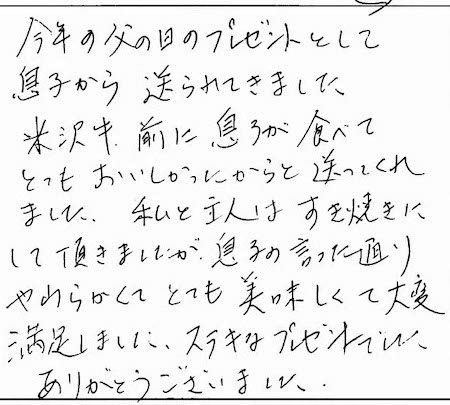 今年の父の日のプレゼントとして
息子から送られてきました、
米沢牛、前に息子が食べて
とてもおいしかったからと送ってくれ
ました、私と主人はすき焼きに
して頂きましたが、息子の言った通り
やわらかくてとても美味しくて大変
満足しました、ステキなプレゼントでした、
ありがとうございました、